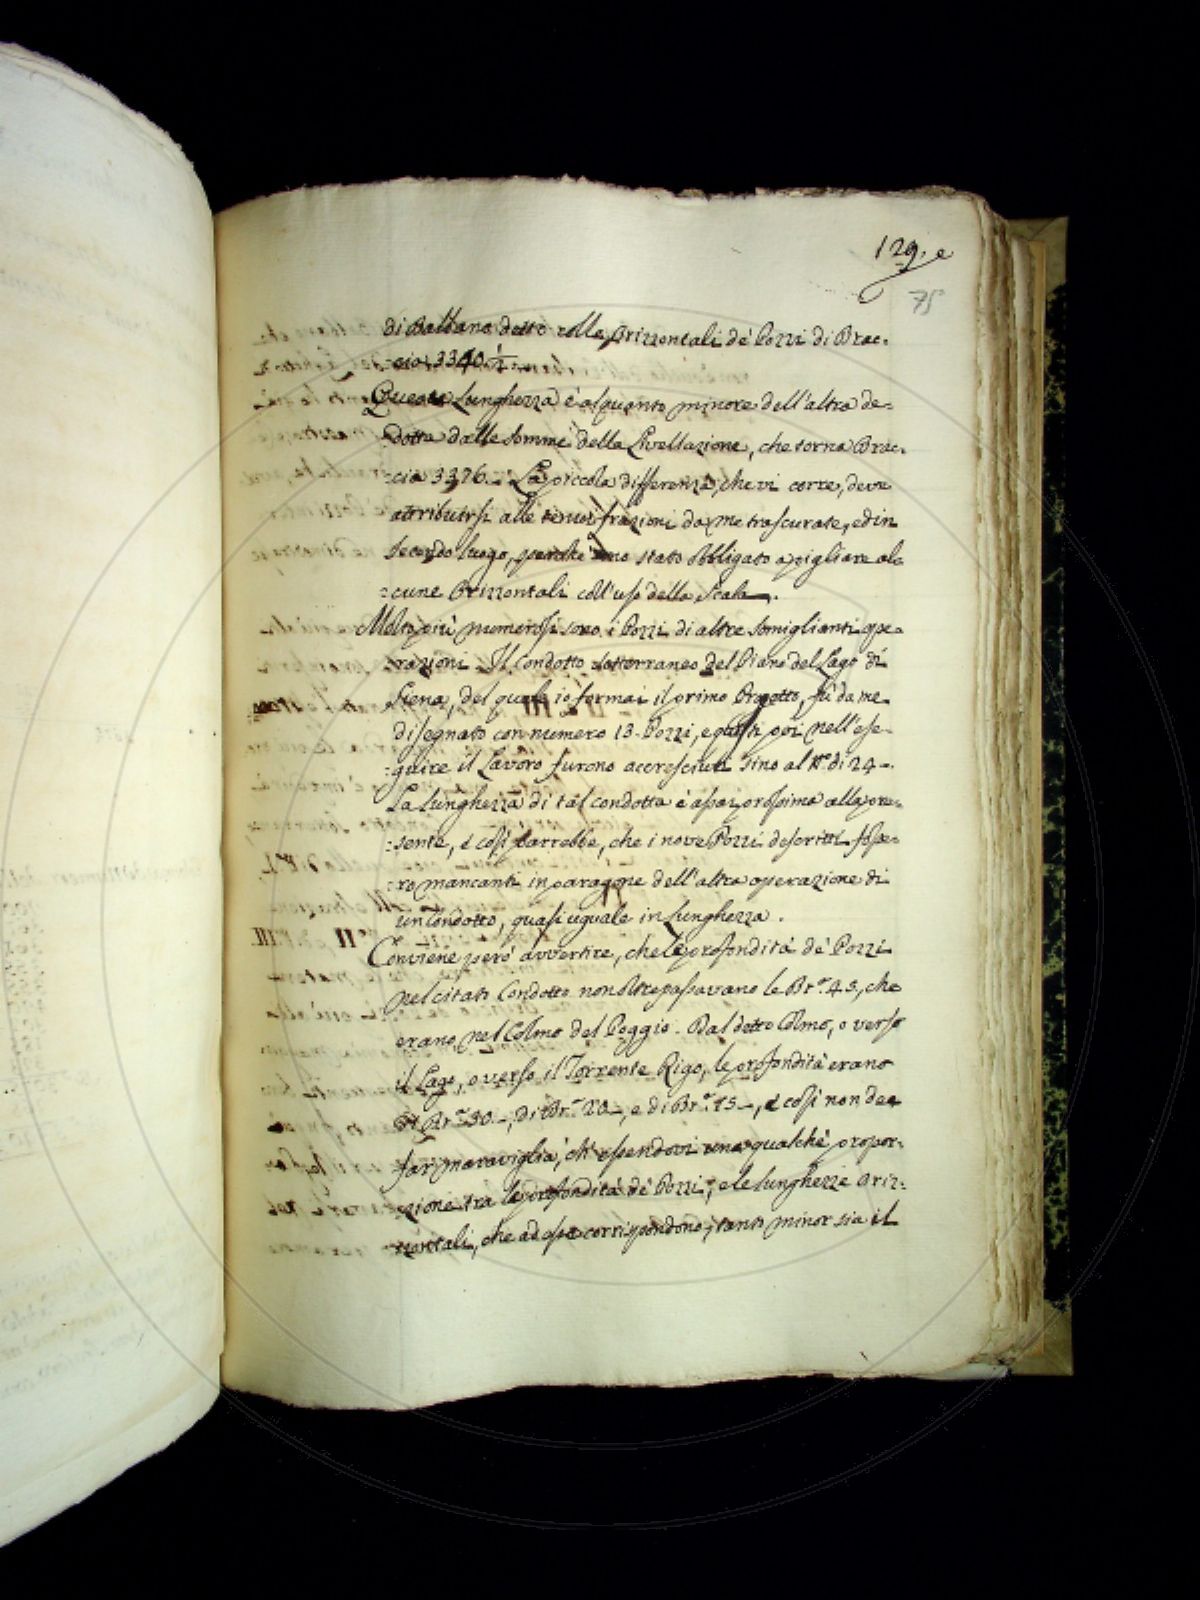 129. e
75
di Balbano detto colle Orizzontali de' Pozzi di Brac:
:cia 3340 ½
Questa Lunghezza è alquanto minore dell'altra de:
:dotta dalle somme della Livellazione, che torna Brac:
:cia 3376. La piccola differenza, che vi corre, deve
attribuirsi alle tenui frazioni da me trascurate, ed in
secondo luogo, perchè sono stato obbligato a pigliare al:
:cune Orizzontali coll'uso della Scala.
Molto più numerosi sono i Pozzi di altre somiglianti ope:
:razioni. Il Condotto sotterraneo del Piano del Lago di
Siena, del quale io formai il primo Progetto, fù da me
disegnato con numero 13. Pozzi, e questi poi nell'ese:
:guire il Lavoro furono accresciuti sino al N.º di 24.
La lunghezza di tal condotta è assai prossima alla pre:
:sente, e così parrebbe, che i nove Pozzi descritti fosse:
:ro mancanti in paragone dell'altra operazione di
un Condotto, quasi uguale in Lunghezza.
Conviene però avvertire, che le profondità de' Pozzi
nel citato Condotto non oltrepassavano le Br.ª 45, che
erano nel Colmo del Poggio. Dal detto Colmo, o verso
il Lago, o verso il Torrente Rigo, le profondità erano
di Br.ª 30, di Br.ª 20, e di Br.ª 15, e così non dee
far maraviglia, ch'essendovi una qualche propor:
:zione tra le profondità de' Pozzi, e le lunghezze Oriz:
:zontali, che ad esse corrispondono, tanto minor sia il